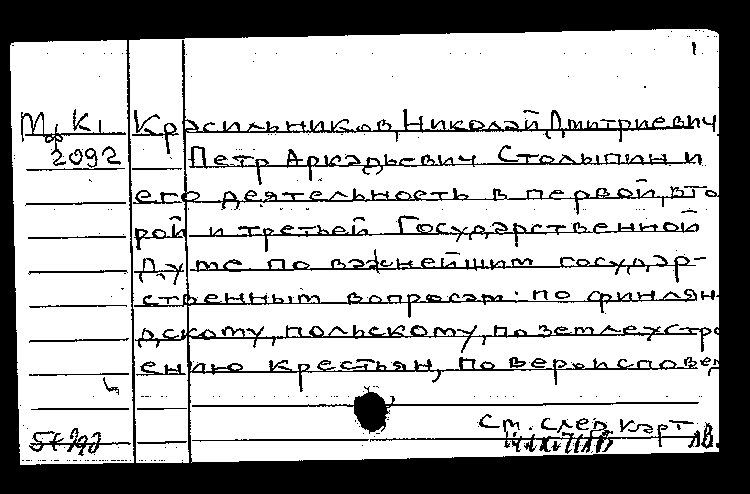 1
Мф К1 Красильников, Николай Дмитриевич
2092 Петр Аркадьевич Столыпин и
его деятельность в первой, вто
рой и третьей Государственной
Думе по важнейшим государ-
ственным вопросам: по финлян
дскому, польскому, по землеустро
ению крестьян, по вероисповед
См. след карт